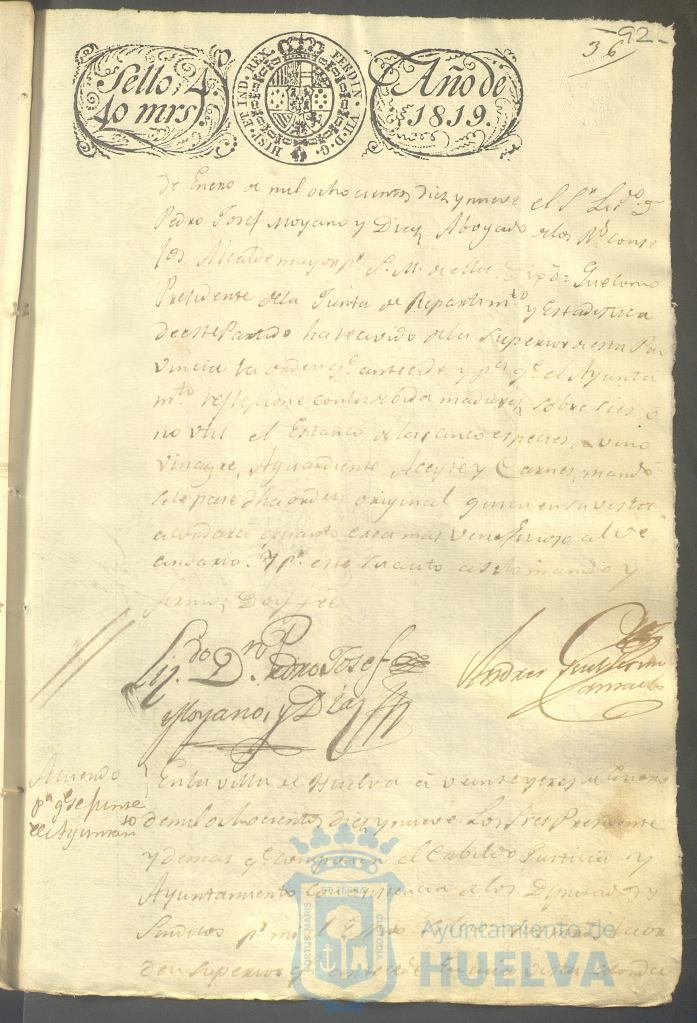 92
36
Sello 4.
40 mrs
HISP. ET IND. REX. FERDIN. VII. D. G.
Año de
1819.
de Enero de mil ochocientos diez y nueve el Sr. Licdo. Dn.
Pedro Josef Moyano y Diaz Abogado de los Rs. Conse
jos Alcalde mayor pr. S. M. de ella. Dixo: Que como
Presidente de la Junta de Repartimto. y Estadistica
de este Partido ha recivido de la Superior de esta Pro
vincia la orden qe. antecede y pa. qe. el Ayunta
mto. reflexione con la devida madurez sobre si es o
no util el Estanco de las cinco especies, vino
vinagre, Aguardiente Aceyte y Carnes, mandó
se le pase dha orden original quien en su vista
acordará quanto crea mas veneficioso al ve
cindario. Y pr. este su auto asi lo mando y
firmo, Doy fee
Lizdo. Dn. Pedro Josef
Moyano, y Diaz
Andres Guillermo
Acuerdo
pa. qe. se junte
el Ayuntamto.
En la villa de Huelva á veinte y tres de Enero
de mil ochocientos diez y nueve Los Sres Presidente
y demas qe. componen el Cabildo Justicia y
Ayuntamiento con asistencia de los Diputados y
Sindicos pr. mi el Essno
den Superior qe. antecede en cuia vista
PORTUS MARIS ET TERRAE CUSTODIA
Ayuntamiento de
HUELVA